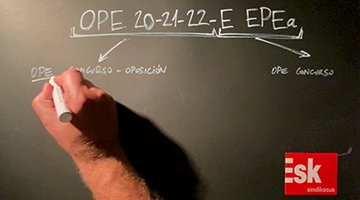 OPE 20-21-22-E EPEa
OPE CONCURSO - OPOSICIÓN
OPE CONCURSO
Esk
sindikatua